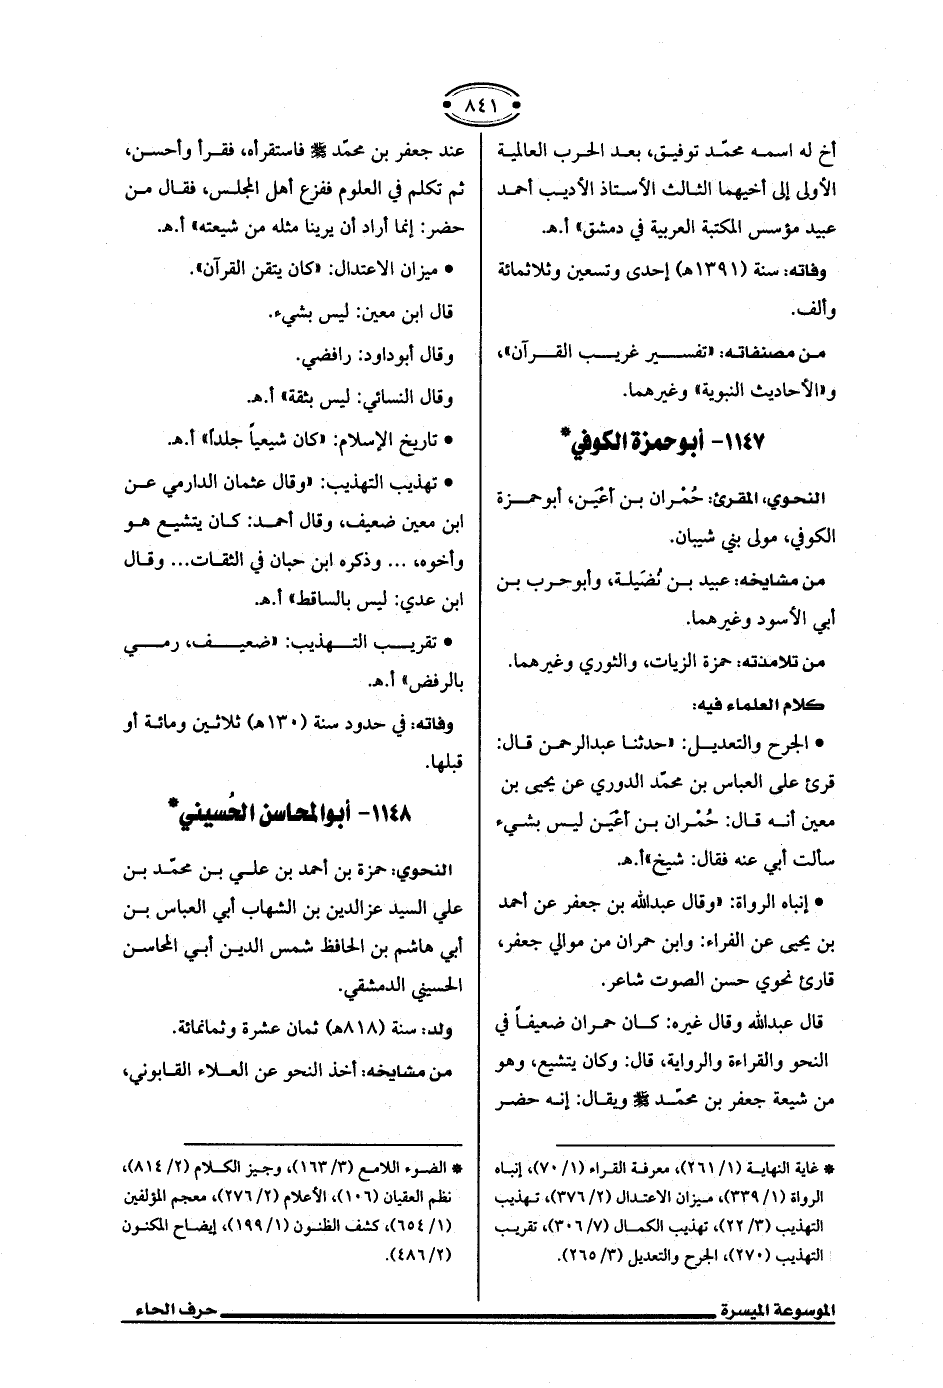 ٨٤١
أخ له اسمه محمّد توفيق، بعد الحرب العالمية
الأولى إلى أخيهما الثالث الأستاذ الأديب أحمد
عبيد مؤسس المكتبة العربية في دمشق» أ.هـ.
وفاته: سنة (١٣٩١هـ) إحدى وتسعين وثلاثمائة
وألف.
من مصنفاته: «تفسير غريب القرآن»،
و«الأحاديث النبوية» وغيرهما.
١١٤٧- أبو حمزة الكوفي*
النحوي، المقرئ: حُمْران بن أعْيَن، أبو حمزة
الكوفي، مولى بني شيبان.
من مشايخه: عبيد بن نُضَيلة، وأبو حرب بن
أبي الأسود وغيرهما.
من تلامذته: حمزة الزيات، والثوري وغيرهما.
كلام العلماء فيه:
• الجرح والتعديل: «حدثنا عبدالرحمن قال:
قرئ على العباس بن محمّد الدوري عن يحيى بن
معين أنه قال: حُمْران بن أعْيَن ليس بشيء
سألت أبي عنه فقال: شيخ»أ.هـ.
• إنباه الرواة: «وقال عبدالله بن جعفر عن أحمد
بن يحيى عن الفراء: وابن حمران من موالي جعفر،
قارئ نحوي حسن الصوت شاعر.
قال عبدالله وقال غيره: كان حمران ضعيفاً في
النحو والقراءة والرواية، قال: وكان يتشيع، وهو
من شيعة جعفر بن محمّد ﷺ ويقال: إنه حضر
* غاية النهاية (١/ ٢٦١)، معرفة القراء (١/ ٧٠)، إنباه
الرواة (١/ ٣٣٩)، ميزان الاعتدال (٢/ ٣٧٦)، تهذيب
التهذيب (٣/ ٢٢)، تهذيب الكمال (٧/ ٣٠٦)، تقريب
التهذيب (٢٧٠)، الجرح والتعديل (٣/ ٢٦٥).
عند جعفر بن محمّد ﷺ فاستقرأه، فقرأ وأحسن،
ثم تكلم في العلوم ففزع أهل المجلس، فقال من
حضر: إنما أراد أن يرينا مثله من شيعته» أ.هـ.
• ميزان الاعتدال: «كان يتقن القرآن».
قال ابن معين: ليس بشيء.
وقال أبو داود: رافضي.
وقال النسائي: ليس بثقة» أ.هـ.
• تاريخ الإسلام: «كان شيعياً جلداً» أ.هـ.
• تهذيب التهذيب: «وقال عثمان الدارمي عن
ابن معين ضعيف، وقال أحمد: كان يتشيع هو
وأخوه، ... وذكره ابن حبان في الثقات... وقال
ابن عدي: ليس بالساقط» أ.هـ.
• تقريب التهذيب: «ضعيف، رمي
بالرفض» أ.هـ.
وفاته: في حدود سنة (١٣٠هـ) ثلاثين ومائة أو
قبلها.
١١٤٨- أبو المحاسن الحُسيني*
النحوي: حمزة بن أحمد بن علي بن محمّد بن
علي السيد عزالدين بن الشهاب أبي العباس بن
أبي هاشم بن الحافظ شمس الدين أبي المحاسن
الحسيني الدمشقي.
ولد: سنة (٨١٨هـ) ثمان عشرة وثمانمائة.
من مشايخه: أخذ النحو عن العلاء القابوني،
* الضوء اللامع (٣/ ١٦٣)، وجيز الكلام (٢/ ٨١٤)،
نظم العقيان (١٠٦)، الأعلام (٢/ ٢٧٦)، معجم المؤلفين
(١/ ٦٥٤)، كشف الظنون (١/ ١٩٩)، إيضاح المكنون
(٢/ ٤٨٦).
الموسوعة الميسرة حرف الحاء